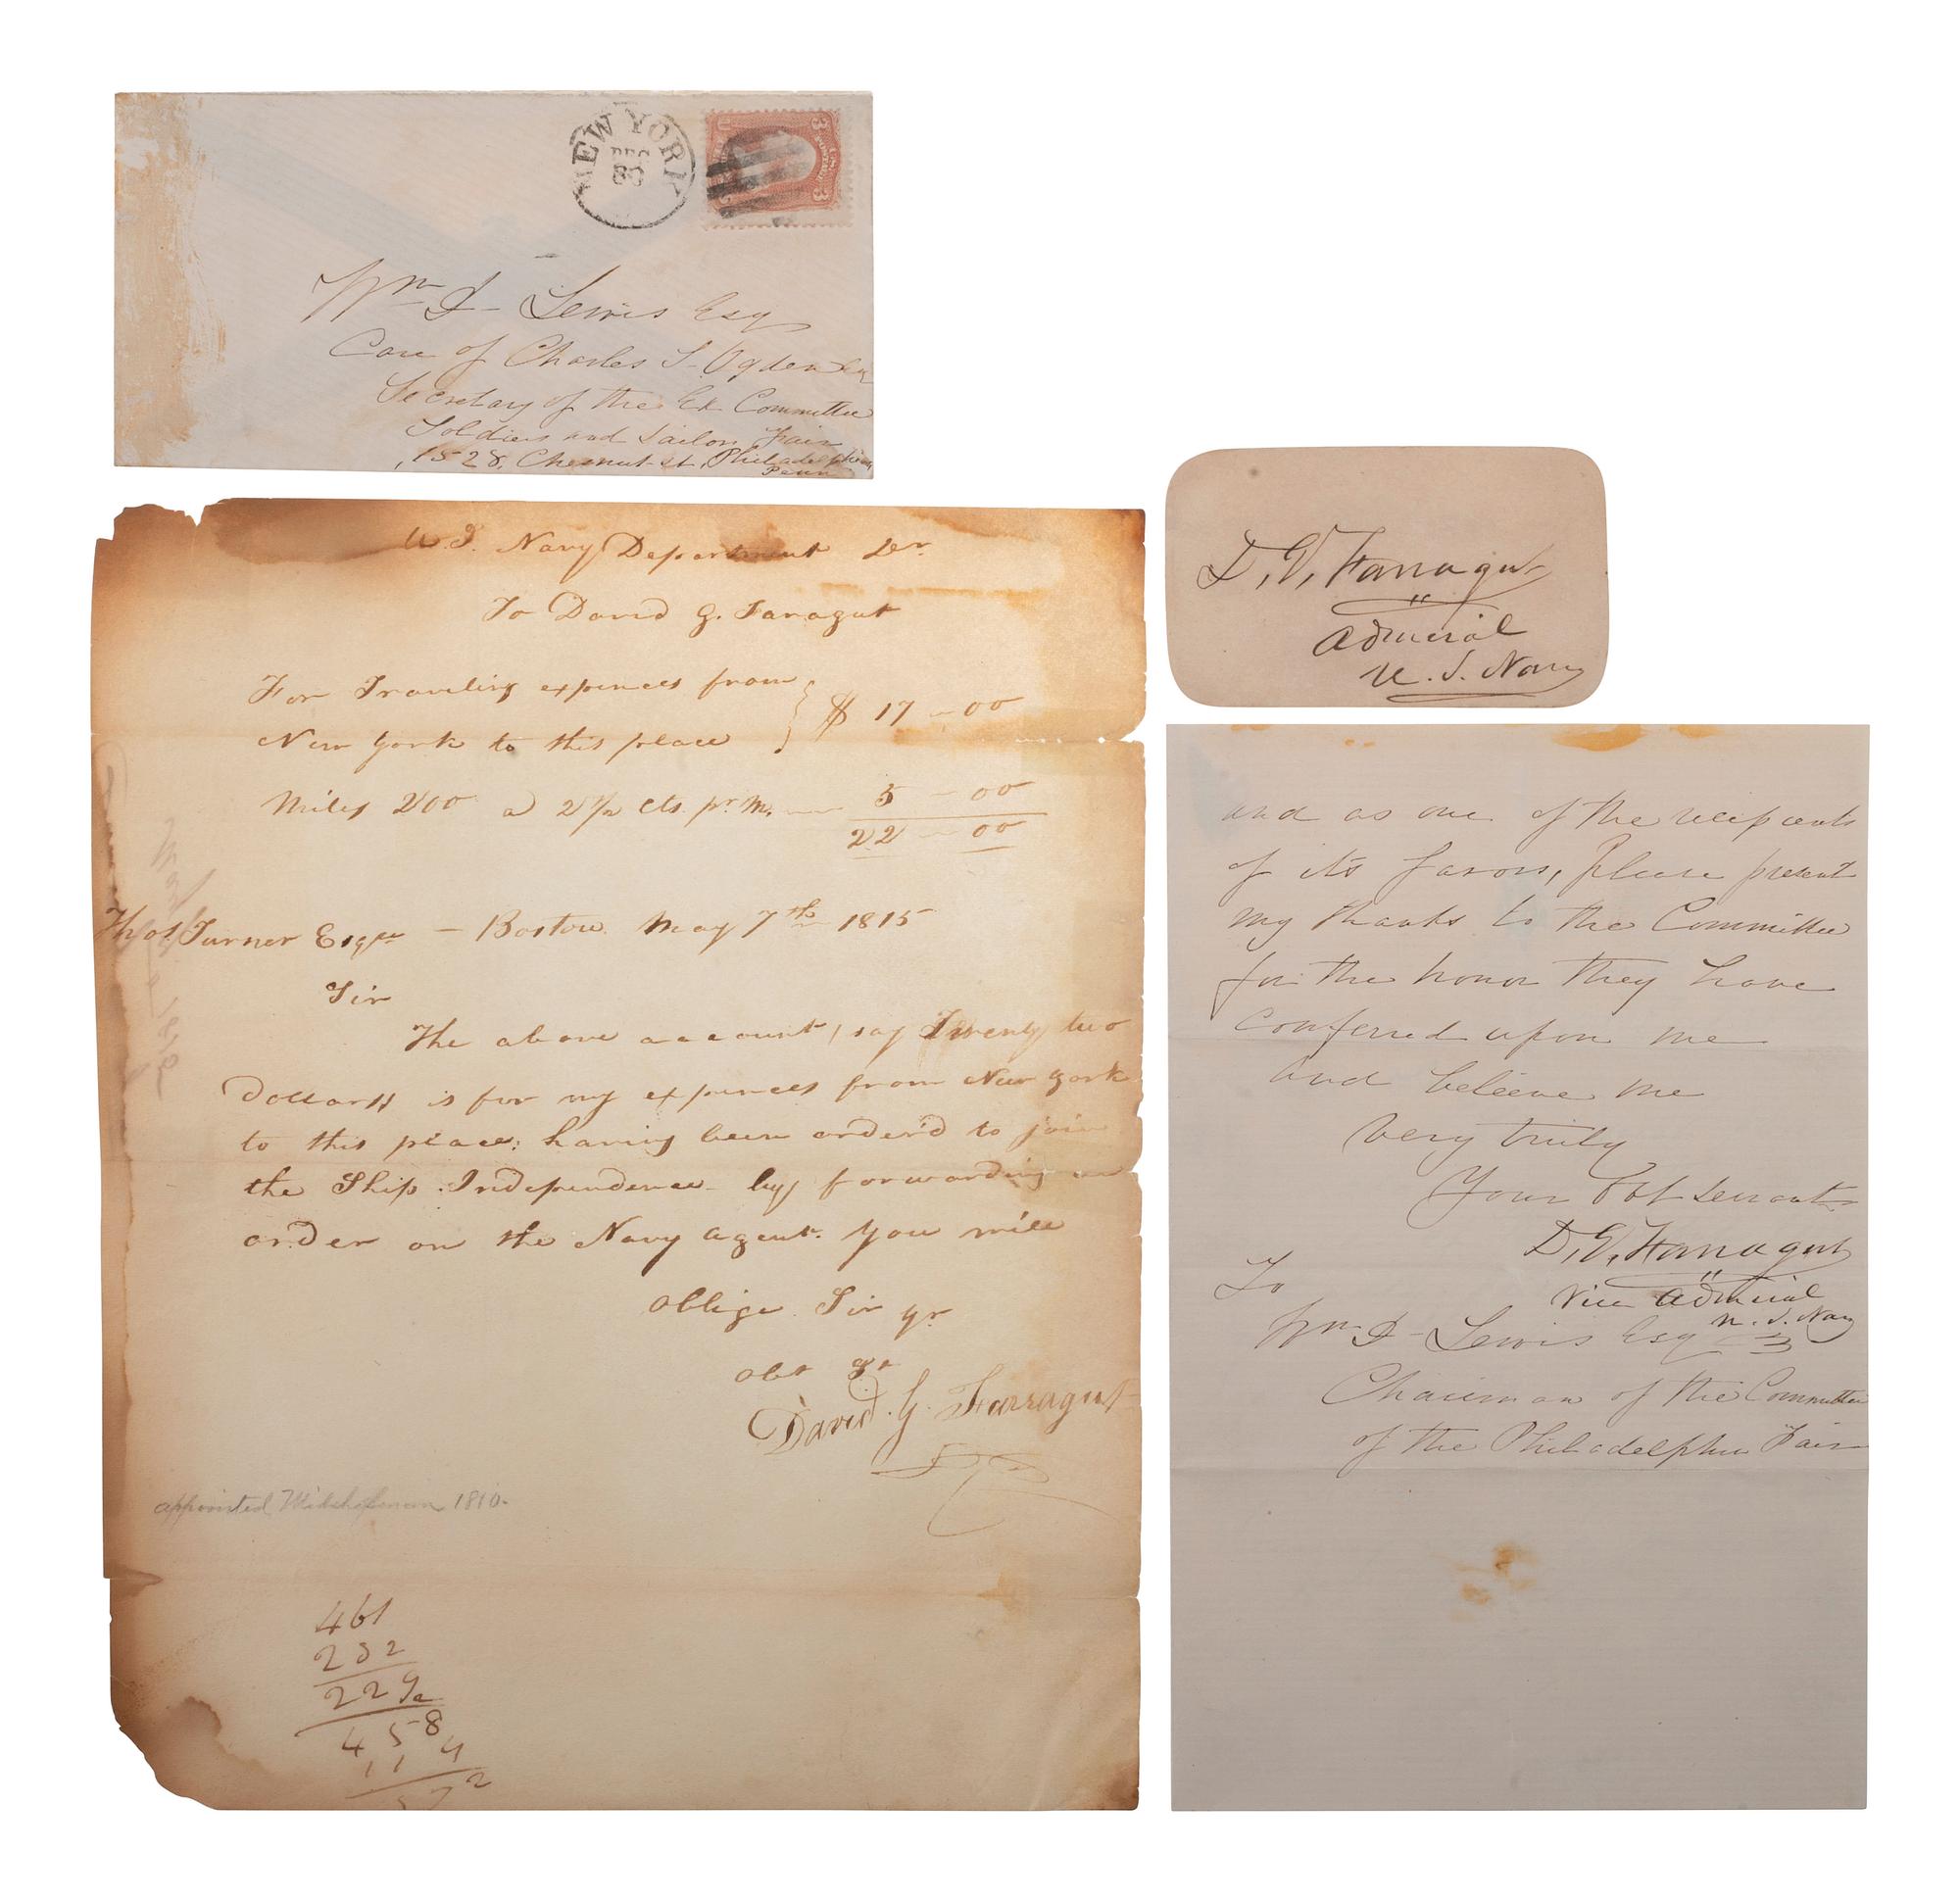 NEW YORK
DEC
30
U.S. POSTAGE
3 3
Wm D Lewis Esq
Care of Charles S. Ogden Esq
Secretary of the Ex Committee
Soldiers and Sailors Fair
1528, Chesnut st, Philadelphia
Penn
U.S. Navy Department Dr.
To David G. Faragut
For Traveling expences from
New York to this place } $ 17 - 00
Miles 200 a 2½ cts. pr. M. 5 - 00
22 - 00
Thos Turner Esqre - Boston May 7th 1815
Sir
The above account, say Twenty two
Dollars is for my expences from New York
to this place; having been order'd to join
the Ship Independence by forwarding an
order on the Navy agent. You will
Oblige Sir yr
Obt St
David G. Farragut
appointed Midshipman 1810.
461
232
229
458
11 4
57 2
D. G. Farragut
Admiral
U. S. Navy
and as one of the recipients
of its favors, Please present
my thanks to the Committee
for the honor they have
conferred upon me
and believe me
very truly
Your Obt servant
D. G. Farragut
Vice Admiral
U. S. Navy
To
Wm D Lewis Esq
Chairman of the Committee
of the Philadelphia Fair